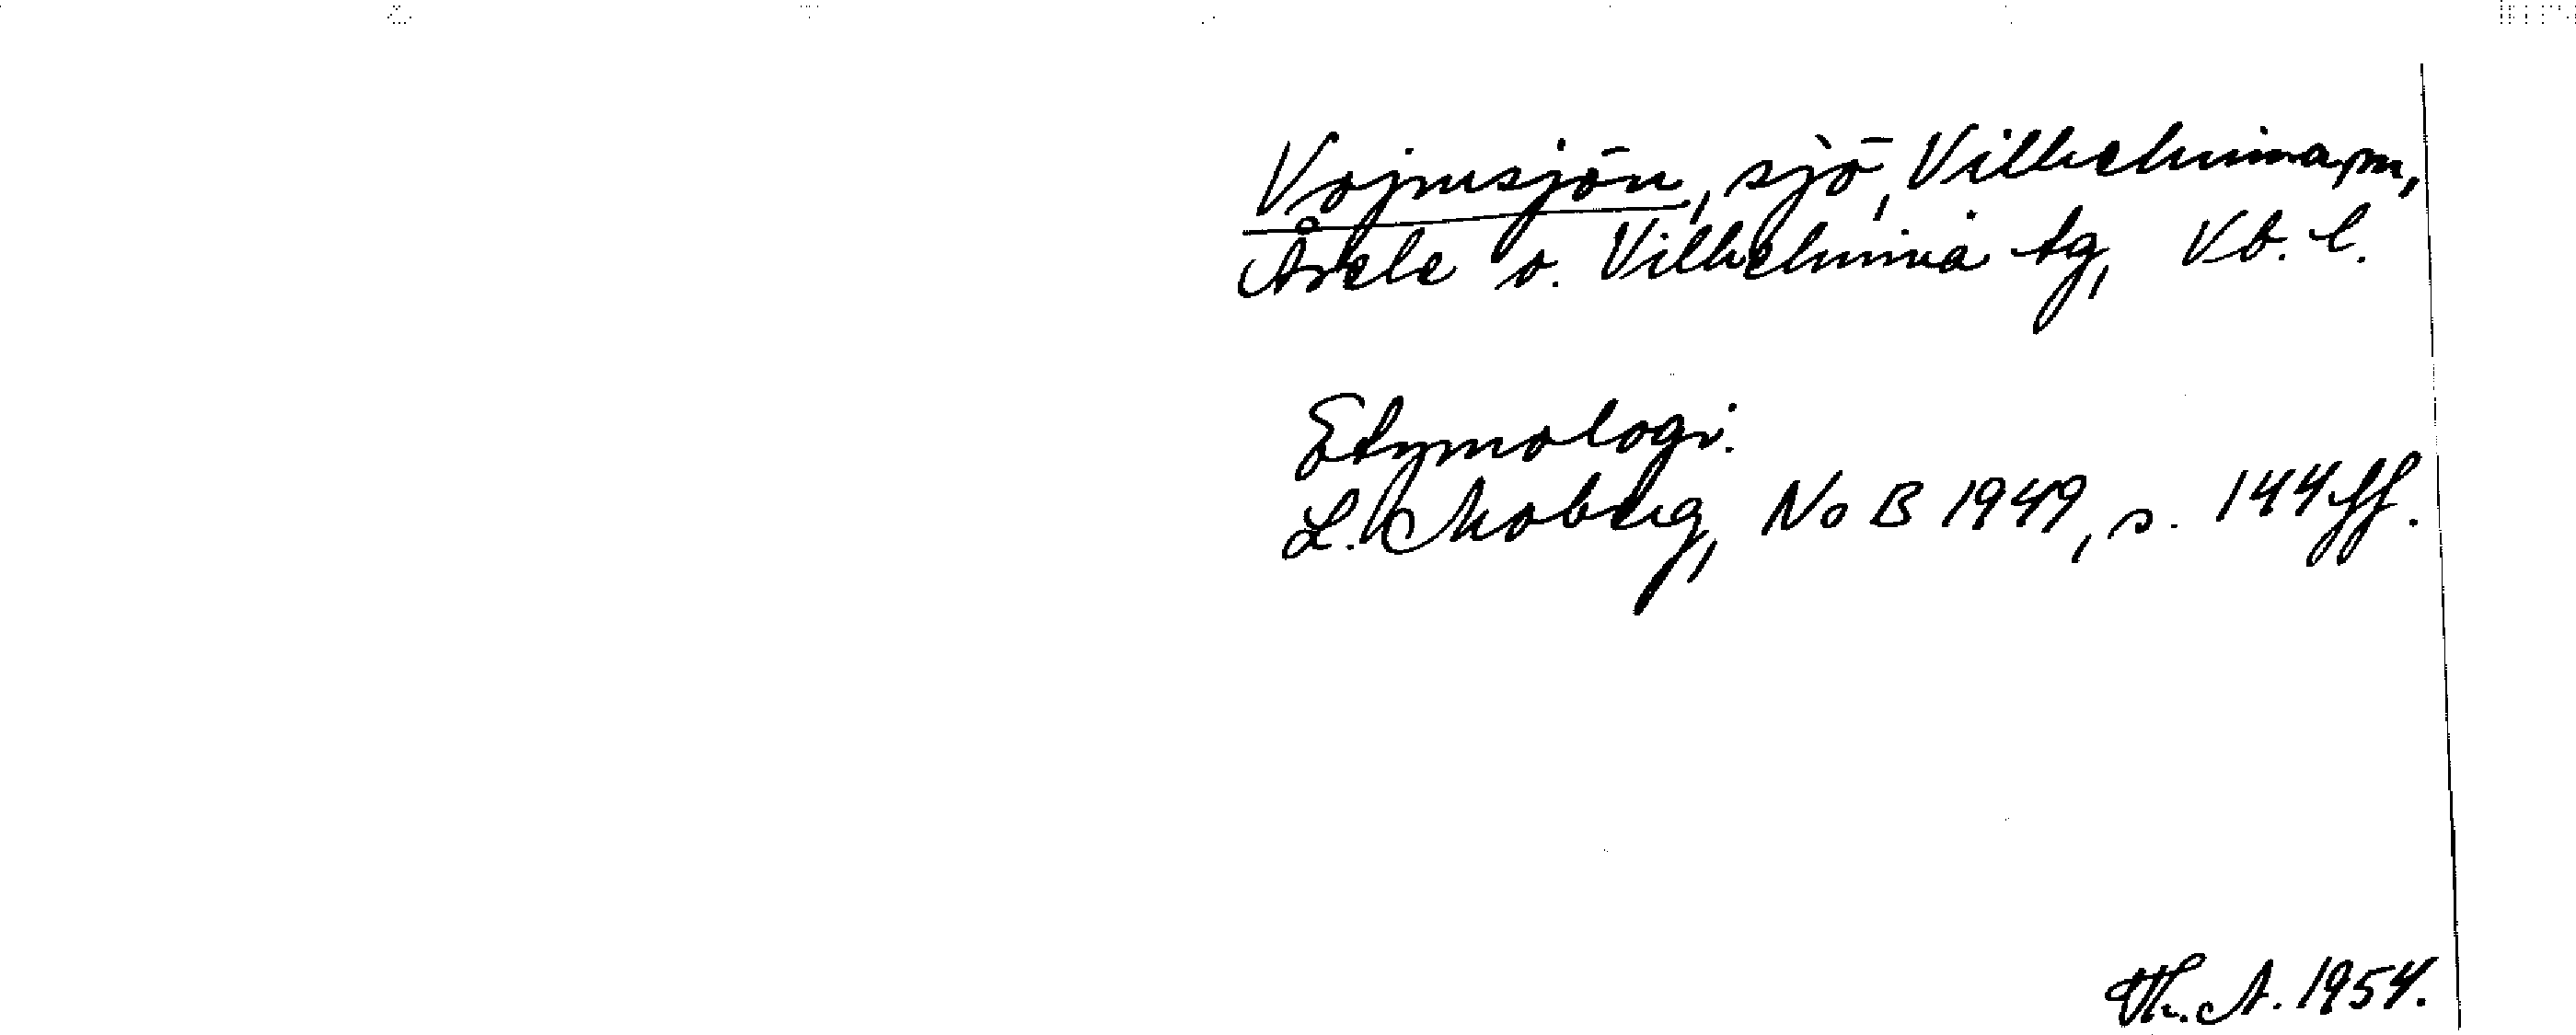 Vojmsjön, sjö, Vilhelmina sn,
Åsele o. Vilhelmina tg, Vb. l.
Etymologi.
L. Moberg, NoB 1949, s. 144 ff.
Th. A. 1954.